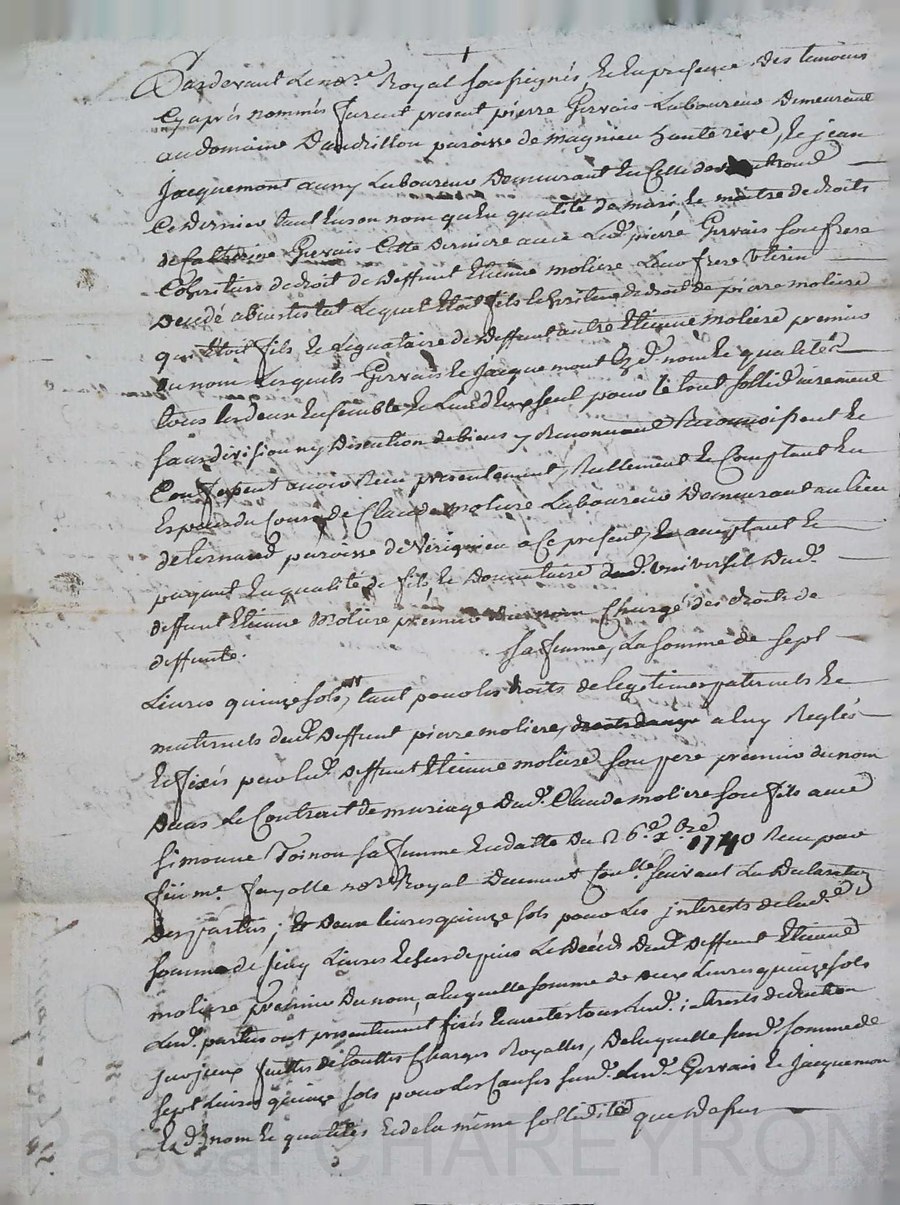 Pardevant Le no.re Royal soussigné, & En presence des temoins
Cy aprés nommés furent present pierre Gervais Laboureur Demeurant
au domaine Dandrillou paroisse de magnieu hauterive, & jean
Jacquemont aussy Laboureur Demeurant En Celle de
Ce Dernier tant En son nom qu'En qualité de mari & maitre de droits
de Catherine Gervais Cette Derniere avec Led. pierre Gervais son frere
Cohéritiers de droit de Deffunt Etienne moliere Leur frere Uterin
Decedé abintestat Lequel Etoit fils & heritier de droit de pierre moliere
qui Etoit fils & Legataire de deffunt autre Etienne moliere premier
du nom Lesquels Gervais & Jacquemont Ezd. nom & qualités
tous les deux Ensemble & L'un d'Eux seul pour le tout sollidairement
sans division ny Discution de biens y Renonceant Reconnoissent &
Confessent avoir Reçu presentement, Reellement & Comptant En
Especes du Cours de Claude moliere Laboureur Demeurant au lieu
de paroisse de Verignieu a Ce present, & acceptant &
payant En qualité de fils, & Donnataire Universel Dud.
deffunt Etienne Moliere premier du nom Chargé des droits de
deffunte. sa femme, La somme de sept
Livres quinze sols, tant pour les droits de legitimes paternels &
maternels dud. Deffunt pierre moliere, a luy Reglés
& fixés par led. deffunt Etienne moliere son pere premier du nom
Dans Le Contrat de mariage Dud. Claude moliere son fils avec
Simonne Toinon sa femme En datte Du 26.e xbre 1740 Reçu par
feu me. fayolle nore Royal Duement Conlle suivant La Declaration
Des parties; & Deux livres quinze sols pour Les jnterets de lad.
somme de Cinq Livres Echus depuis Le Deces Dud. Deffunt Etienne
moliere premier Du nom, a laquelle somme de Deux Livres quinze sols
Lesd. parties ont presentement fixés Entre Elles tous Lesd. jnterets
jusqu'aux de touttes Charges Royalles, De laquelle susd. somme de
sept Livres quinze sols pour Les Causes susd. Lesd. Gervais & Jacquemont
Ezd. nom & qualités & de la même sollidité que Dessus
Pascal CHAREYRON